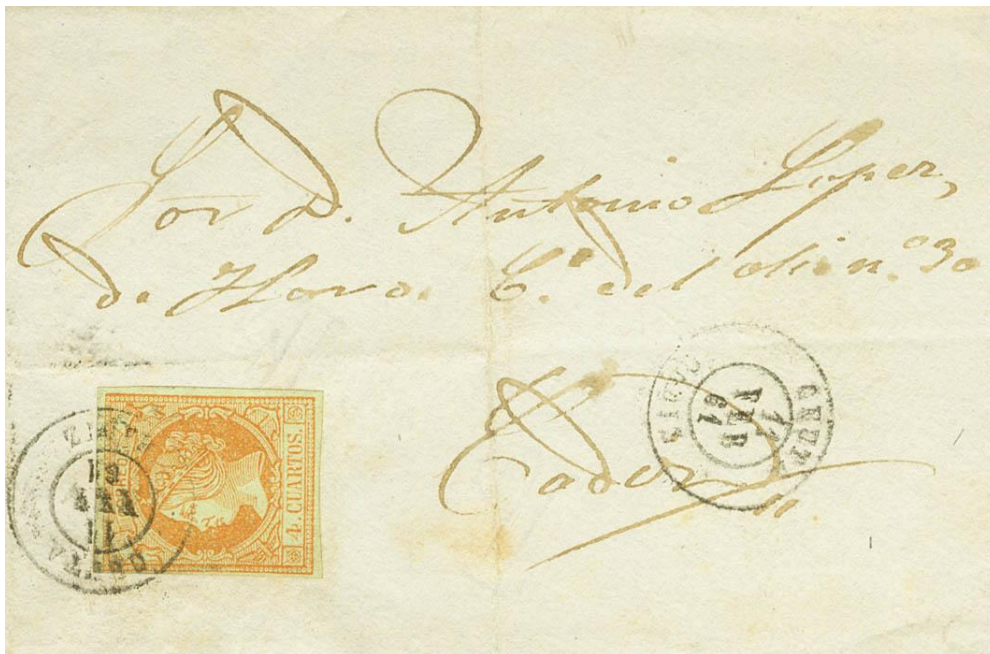 Sor D. Antonio Lopez,
de Haro. C.ª del olio n.º 30
Cadiz
4. CUARTOS.
CEUTA
17
FEB
61
CADIZ